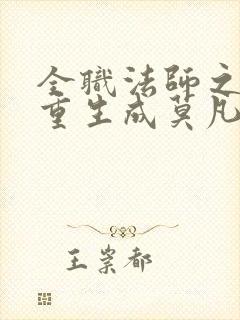 全職法師之
重生成莫凡
王崇都